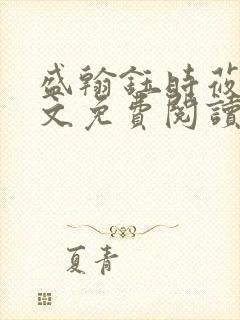 盛翰鈺時莜
文免費閱讀
夏青